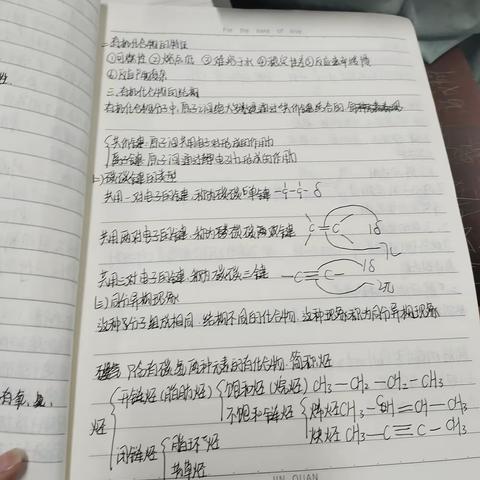 For the sake of love
二.有机化合物的特征
①可燃性 ②熔点低 ③难溶于水 ④稳定性差 ⑤反应速率缓慢
⑥反应产物复杂
三.有机化合物的结构
有机化合物分子中,原子之间绝大多数是通过共价键结合的
共价键:原子间共用电子对形成的作用力
原子间通过静电引力形成的作用力
(二)碳碳键的类型
共用一对电子的键,称为碳碳单键 -C-C- δ
共用两对电子的键,称为碳碳双键 C=C 1δ
1π
共用三对电子的键,称为碳碳三键 -C≡C- 1δ
2π
(三)同分异构现象
这种分子组成相同,结构不同的化合物,这种现象称为同分异构现象
只含有碳、氢两种元素的有机化合物,简称烃
烃 开链烃(脂肪烃) 饱和烃(烷烃) CH3-CH2-CH2-CH3
不饱和链烃 烯烃 CH3-CH=CH-CH3
炔烃 CH3-C≡C-CH3
闭链烃 脂环烃
芳香烃
JIN QUAN